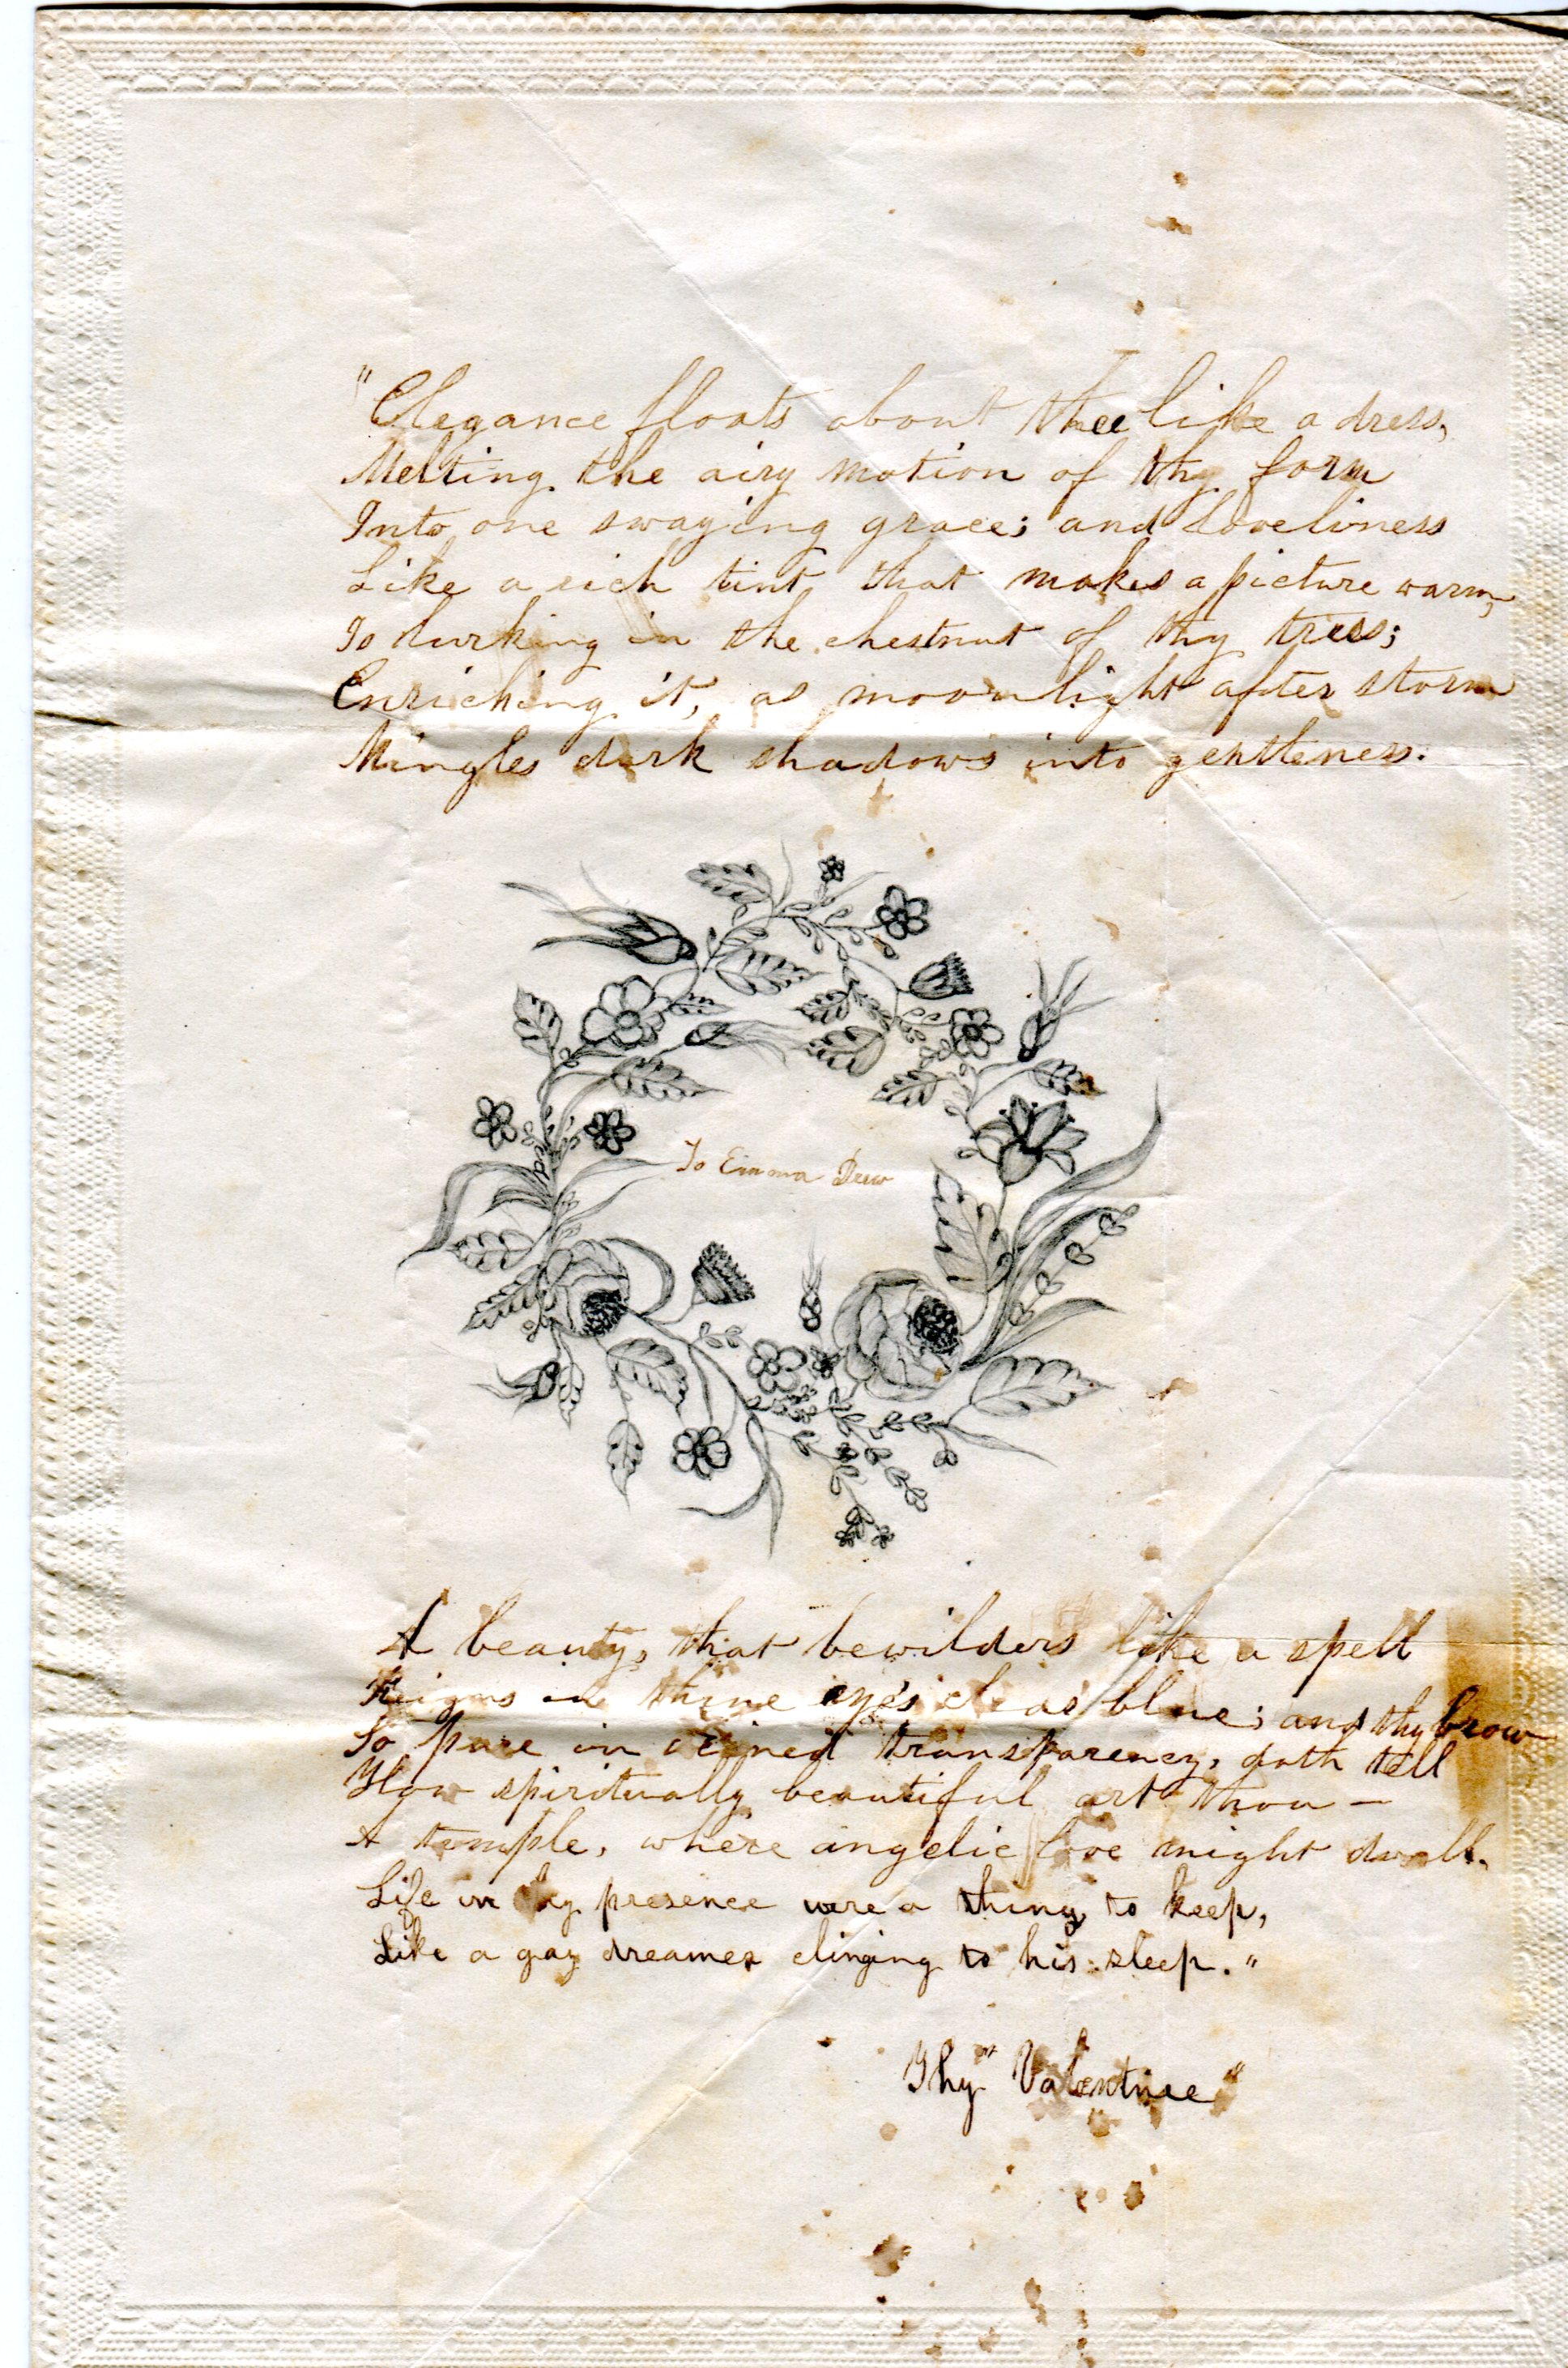 "Elegance floats about thee like a dress,
Melting the airy motion of thy form
Into one swaying grace; and loveliness
Like a rich tint that makes a picture warm,
Is lurking in the chestnut of thy tress;
Enriching it, as moonlight after storm
Mingles dark shadows into gentleness.
To Emma Dew
A beauty, that bewilders like a spell
Reigns in thine eye's clear blue; and thy brow
So pure in veined transparency, doth tell
How spiritually beautiful art thou —
A temple, where angelic love might dwell.
Life in thy presence were a thing to keep,
Like a gay dreamer clinging to his sleep."
Thy "Valentine"